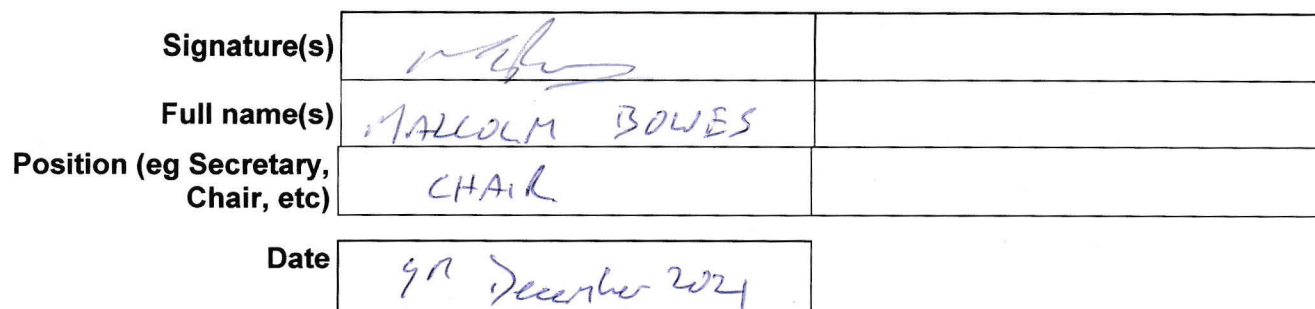 Signature(s)
Full name(s) MALCOLM BOWES
Position (eg Secretary,
Chair, etc) CHAIR
Date December 2021